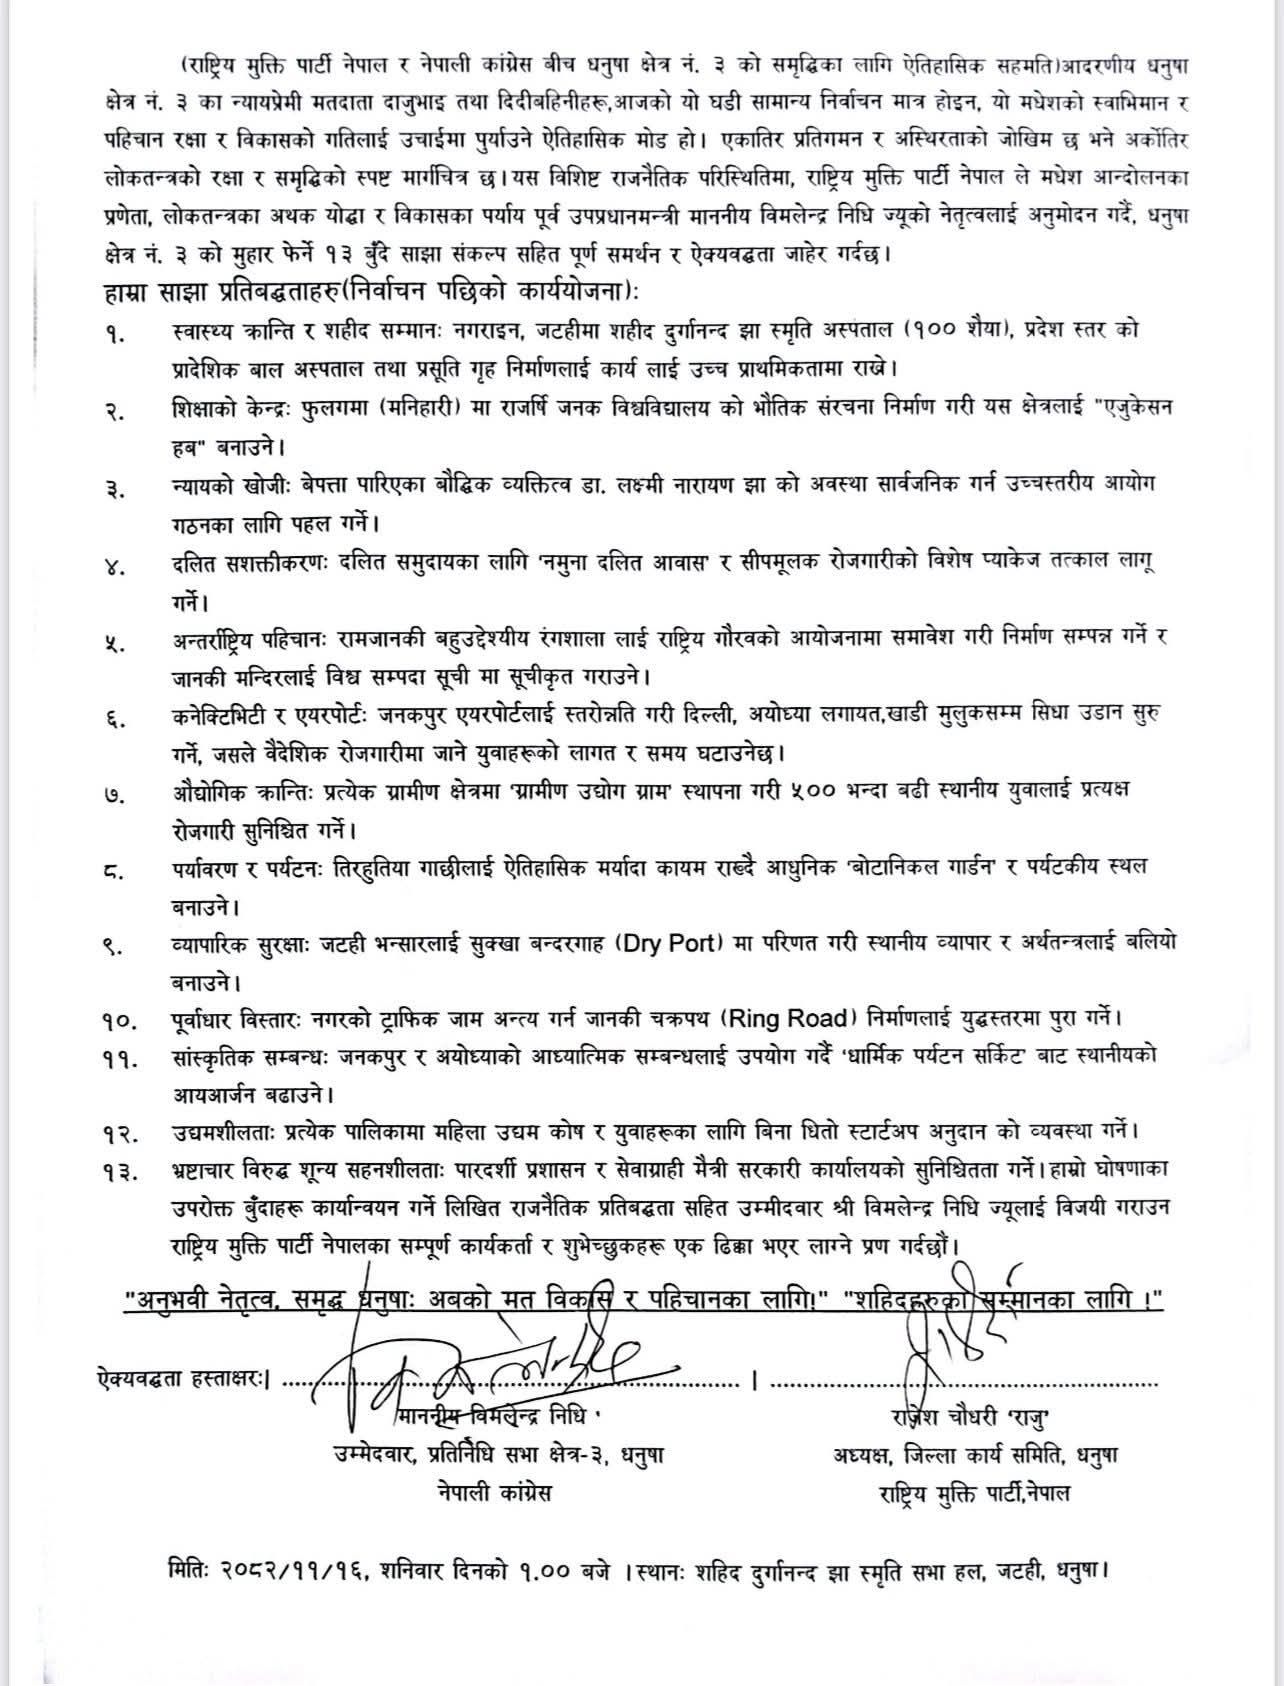 (राष्ट्रिय मुक्ति पार्टी नेपाल र नेपाली कांग्रेस बीच धनुषा क्षेत्र नं. ३ को समृद्धिका लागि ऐतिहासिक सहमति)आदरणीय धनुषा
क्षेत्र नं. ३ का न्यायप्रेमी मतदाता दाजुभाइ तथा दिदीबहिनीहरू,आजको यो घडी सामान्य निर्वाचन मात्र होइन, यो मधेशको स्वाभिमान र
पहिचान रक्षा र विकासको गतिलाई उचाईमा पुर्याउने ऐतिहासिक मोड हो। एकातिर प्रतिगमन र अस्थिरताको जोखिम छ भने अर्कोतिर
लोकतन्त्रको रक्षा र समृद्धिको स्पष्ट मार्गचित्र छ।यस विशिष्ट राजनैतिक परिस्थितिमा, राष्ट्रिय मुक्ति पार्टी नेपाल ले मधेश आन्दोलनका
प्रणेता, लोकतन्त्रका अथक योद्धा र विकासका पर्याय पूर्व उपप्रधानमन्त्री माननीय विमलेन्द्र निधि ज्यूको नेतृत्वलाई अनुमोदन गर्दै, धनुषा
क्षेत्र नं. ३ को मुहार फेर्ने १३ बुँदे साझा संकल्प सहित पूर्ण समर्थन र ऐक्यवद्धता जाहेर गर्दछ।
हाम्रा साझा प्रतिबद्धताहरु(निर्वाचन पछिको कार्ययोजना):
१. स्वास्थ्य क्रान्ति र शहीद सम्मानः नगराइन, जटहीमा शहीद दुर्गानन्द झा स्मृति अस्पताल (१०० शैया), प्रदेश स्तर को
प्रादेशिक बाल अस्पताल तथा प्रसूति गृह निर्माणलाई कार्य लाई उच्च प्राथमिकतामा राखे।
२. शिक्षाको केन्द्रः फुलगमा (मनिहारी) मा राजर्षि जनक विश्वविद्यालय को भौतिक संरचना निर्माण गरी यस क्षेत्रलाई "एजुकेसन
हब" बनाउने।
३. न्यायको खोजीः बेपत्ता पारिएका बौद्धिक व्यक्तित्व डा. लक्ष्मी नारायण झा को अवस्था सार्वजनिक गर्न उच्चस्तरीय आयोग
गठनका लागि पहल गर्ने।
४. दलित सशक्तीकरणः दलित समुदायका लागि 'नमुना दलित आवास' र सीपमूलक रोजगारीको विशेष प्याकेज तत्काल लागू
गर्ने।
५. अन्तर्राष्ट्रिय पहिचानः रामजानकी बहुउद्देश्यीय रंगशाला लाई राष्ट्रिय गौरवको आयोजनामा समावेश गरी निर्माण सम्पन्न गर्ने र
जानकी मन्दिरलाई विश्व सम्पदा सूची मा सूचीकृत गराउने।
६. कनेक्टिभिटी र एयरपोर्टः जनकपुर एयरपोर्टलाई स्तरोन्नति गरी दिल्ली, अयोध्या लगायत,खाडी मुलुकसम्म सिधा उडान सुरु
गर्ने, जसले वैदेशिक रोजगारीमा जाने युवाहरूको लागत र समय घटाउनेछ।
७. औद्योगिक क्रान्तिः प्रत्येक ग्रामीण क्षेत्रमा 'ग्रामीण उद्योग ग्राम' स्थापना गरी ५०० भन्दा बढी स्थानीय युवालाई प्रत्यक्ष
रोजगारी सुनिश्चित गर्ने।
८. पर्यावरण र पर्यटनः तिरहुतिया गाछीलाई ऐतिहासिक मर्यादा कायम राख्दै आधुनिक 'बोटानिकल गार्डन' र पर्यटकीय स्थल
बनाउने।
९. व्यापारिक सुरक्षाः जटही भन्सारलाई सुक्खा बन्दरगाह (Dry Port) मा परिणत गरी स्थानीय व्यापार र अर्थतन्त्रलाई बलियो
बनाउने।
१०. पूर्वाधार विस्तारः नगरको ट्राफिक जाम अन्त्य गर्न जानकी चक्रपथ (Ring Road) निर्माणलाई युद्धस्तरमा पुरा गर्ने।
११. सांस्कृतिक सम्बन्धः जनकपुर र अयोध्याको आध्यात्मिक सम्बन्धलाई उपयोग गर्दै 'धार्मिक पर्यटन सर्किट' बाट स्थानीयको
आयआर्जन बढाउने।
१२. उद्यमशीलताः प्रत्येक पालिकामा महिला उद्यम कोष र युवाहरूका लागि बिना धितो स्टार्टअप अनुदान को व्यवस्था गर्ने।
१३. भ्रष्टाचार विरुद्ध शून्य सहनशीलताः पारदर्शी प्रशासन र सेवाग्राही मैत्री सरकारी कार्यालयको सुनिश्चितता गर्ने।हाम्रो घोषणाका
उपरोक्त बुँदाहरू कार्यान्वयन गर्ने लिखित राजनैतिक प्रतिबद्धता सहित उम्मीदवार श्री विमलेन्द्र निधि ज्यूलाई विजयी गराउन
राष्ट्रिय मुक्ति पार्टी नेपालका सम्पूर्ण कार्यकर्ता र शुभेच्छुकहरू एक ढिक्का भएर लाग्ने प्रण गर्दछौं।
"अनुभवी नेतृत्व, समृद्ध धनुषाः अबको मत विकास र पहिचानका लागि!" "शहिदहरुको सम्मानका लागि ।"
ऐक्यवद्धता हस्ताक्षरः| .......................................................... | ..................................................
माननीय विमलेन्द्र निधि राजेश चौधरी 'राजु'
उम्मेदवार, प्रतिनिधि सभा क्षेत्र-३, धनुषा अध्यक्ष, जिल्ला कार्य समिति, धनुषा
नेपाली कांग्रेस राष्ट्रिय मुक्ति पार्टी,नेपाल
मितिः २०८२/११/१६, शनिवार दिनको १.०० बजे ।स्थानः शहिद दुर्गानन्द झा स्मृति सभा हल, जटही, धनुषा।